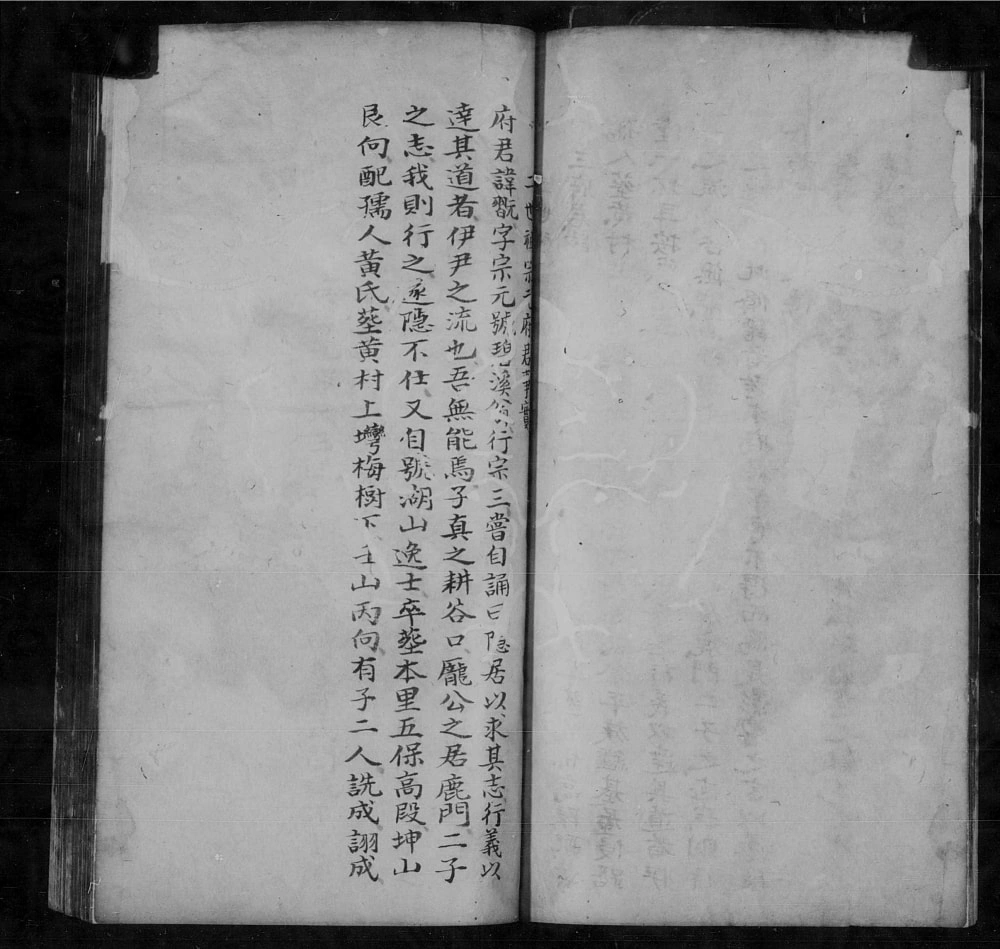 二世祖宗元府君事實
府君諱翫字宗元號珀溪公行宗三嘗自誦曰隱居以求其志行義以
達其道者伊尹之流也吾無能焉子真之耕谷口龐公之居鹿門二子
之志我則行之遂隱不仕又自號湖山逸士卒塟本里五保高段坤山
艮向配孺人黃氏塟黃村上塆梅樹下壬山丙向有子二人詵成詡成